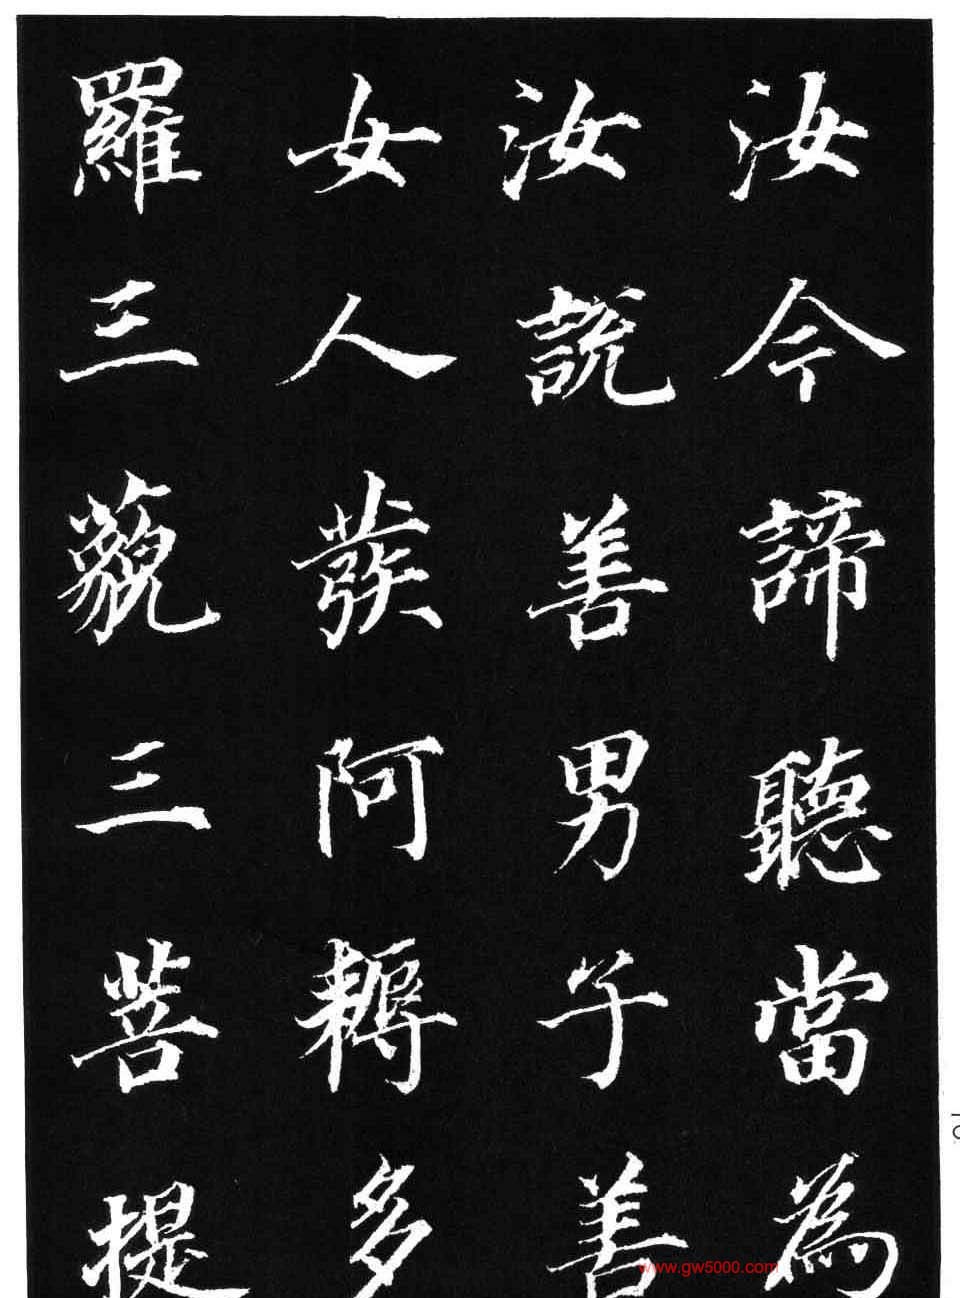 汝今諦聽當為
汝說善男子善
女人發阿耨多
羅三藐三菩提
www.gw5000.com